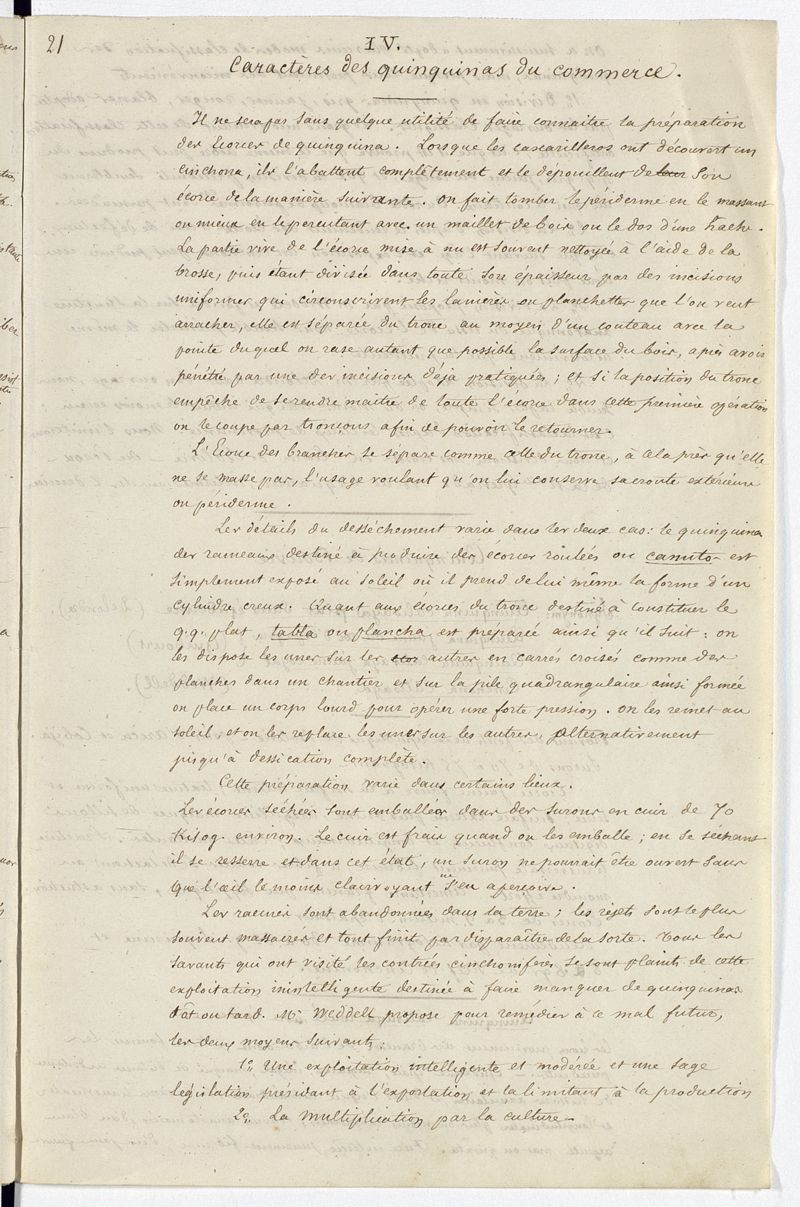 21
IV.
Caractères des quinquinas du commerce.
Il ne sera pas sans quelque utilité de faire connaitre la préparation
des Ecorces de quinquina. Lorsque les cascarilleros ont découvert un
cinchona, ils l'abattent complètement et le dépouillent de leur son
écorce de la manière suivante. on fait tomber le périderme en le massant
ou mieux en le percutant avec un maillet de bois ou le dos d'une hache.
La partie vive de l'écorce mise à nu est souvent nettoyée à l'aide de la
brosse, puis étant divisée dans toute son epaisseur par des incisions
uniformes qui circonscrivent les lanières ou planchettes que l'on veut
arracher, elle est séparée du tronc au moyen d'un couteau avec la
pointe duquel on rase autant que possible la surface du bois, après avoir
pénétré par une des incisions déja pratiquées; et si la position du tronc
empêche de se rendre maitre de toute l'écorce dans cette première opération
on le coupe par tronçons afin de pouvoir le retourner.
L'Ecorce des branches se sépare comme celle du tronc, à cela près qu'elle
ne se masse pas, l'usage voulant qu'on lui conserve sa croute extérieure
ou périderme.
Les détails du desséchement varie dans les deux cas: le quinquina
des rameaux destiné à produire des écorces roulées ou canuto est
simplement exposé au soleil où il prend de lui même la forme d'un
cylindre creux. Quant aux écorces du tronc destiné à constituer le
q.q. plat, tabla ou plancha est préparée ainsi qu'il suit: on
les dispose les unes sur les autres en carrés croisés comme des
planches dans un chantier et sur la pile quadrangulaire ainsi formée
on place un corps lourd pour opérer une forte pression. on les remet au
soleil, et on les replace les unes sur les autres, alternativement
jusqu'à dessication complète.
Cette préparation varie dans certains lieux.
Les écorces séchées sont emballées dans des surons en cuir de 70
Kilog. environ. Le cuir est frais quand on les emballe; en se séchant
il se resserre et dans cet état, un suron ne pourrait être ouvert sans
que l'œil le moins clairvoyant s'en aperçoive.
Les racines sont abandonnées dans la terre; les rejets sont le plus
souvent massacrés et tout finit par disparaître de la sorte. Tous les
savants qui ont visité les contrées cinchonifères se sont plaints de cette
exploitation inintelligente destinée à faire manquer de quinquinas
tôt ou tard. Mr Weddell propose pour remédier à ce mal futur,
les deux moyens suivants:
1º. Une exploitation intelligente et modérée et une sage
législation présidant à l'exportation et la limitant à la production
2º. La multiplication par la culture.